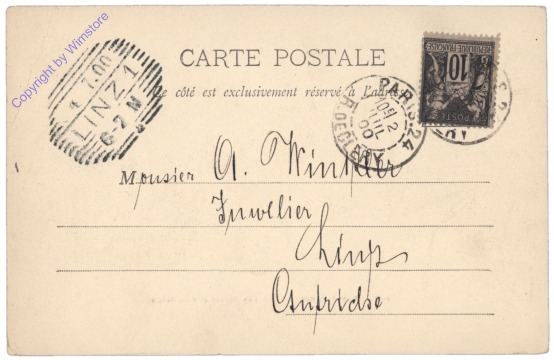 Copyright by Wimstore
CARTE POSTALE
Ce côté est exclusivement réservé à l'adresse
4 7.00
LINZ 1
6-7 N
PARIS-24
R. DE CLERY
2
00
POSTE
10
RÉPUBLIQUE FRANÇAISE
Monsieur A. Winkler
Juwelier
Linz
Autriche